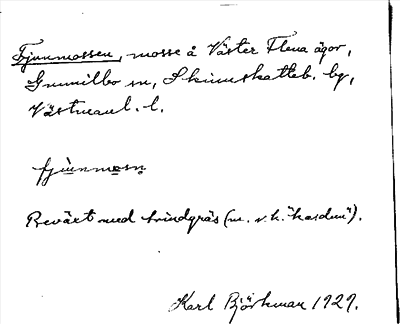 Fjunmossen, mosse å Väster Flena ägor,
Gunnilbo sn, Skinnskatteb. bg,
Västmanl. l.
fjùnmosn
Beväxt med hvindgräs (m. v. k. "kardun").
Karl Björkman 1929.